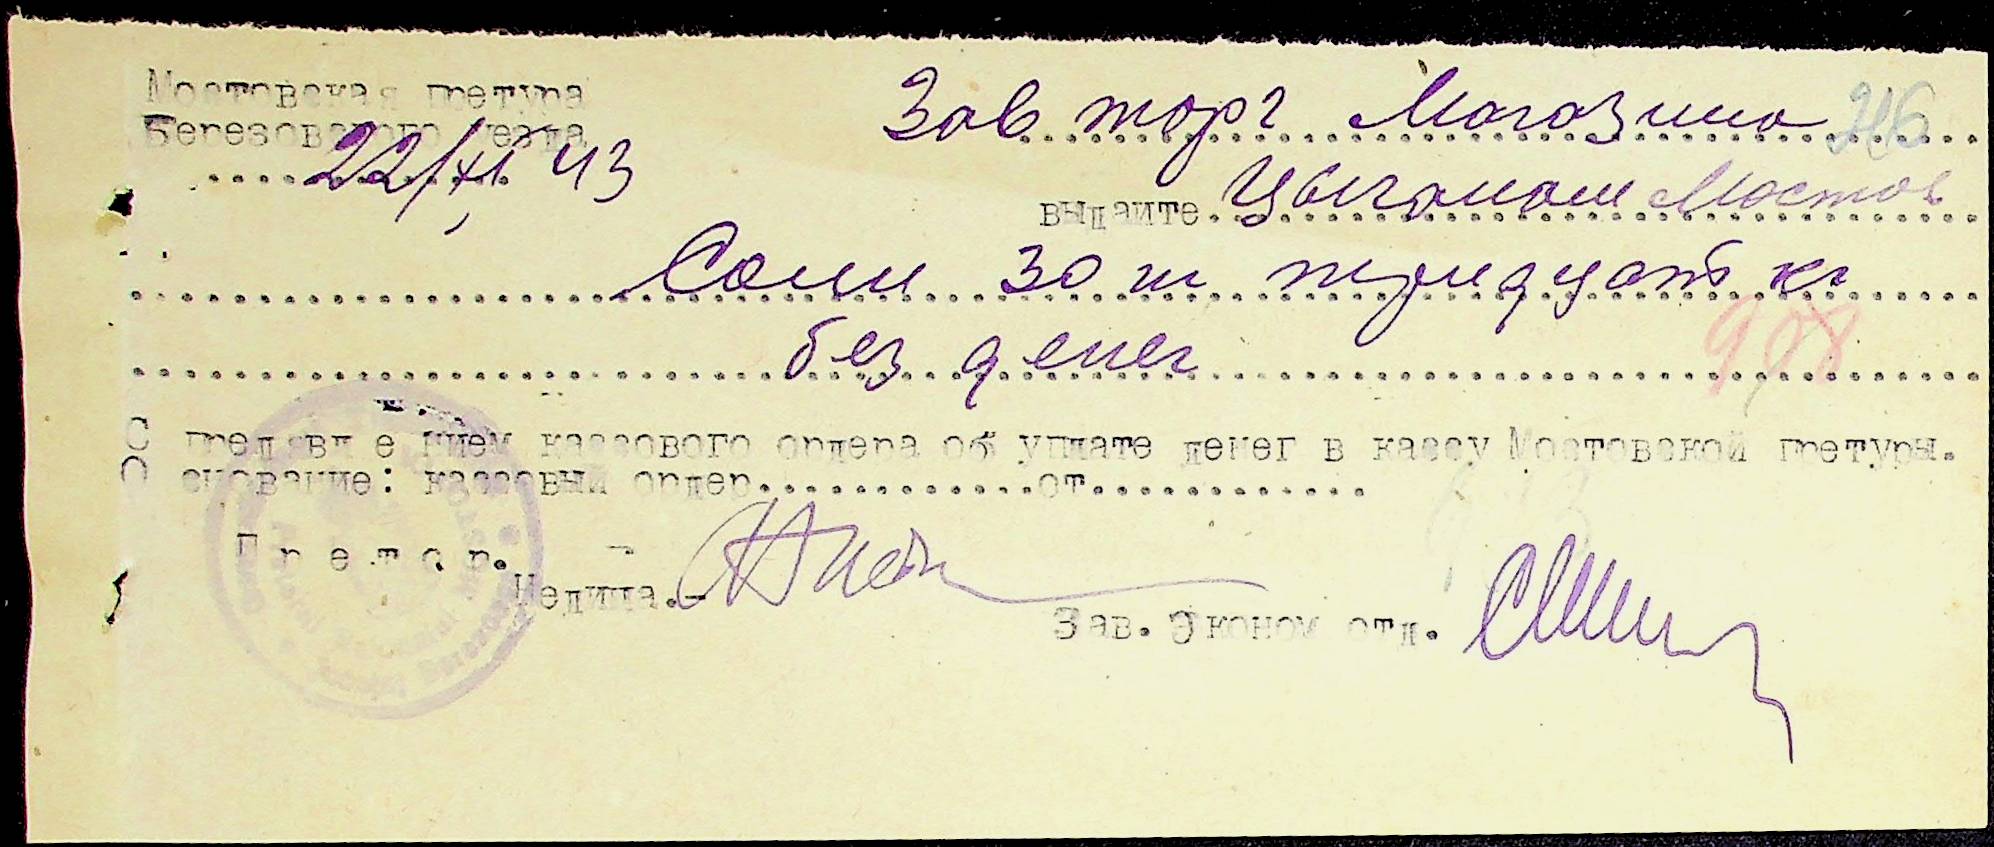 Мостовская претура
Березовского уезда
22/XI 43
Зав торг Магазина
246
выдаите. Цыганам Мостов
Соли 30 кг тридцать кг
без денег
908
С предявл е нием кассового ордера об уплате денег в кассу Мостовской претуры.
О снование: кассовый ордер.............от.............
П р е т о р.
Челица.-
Зав. Эконом отд.